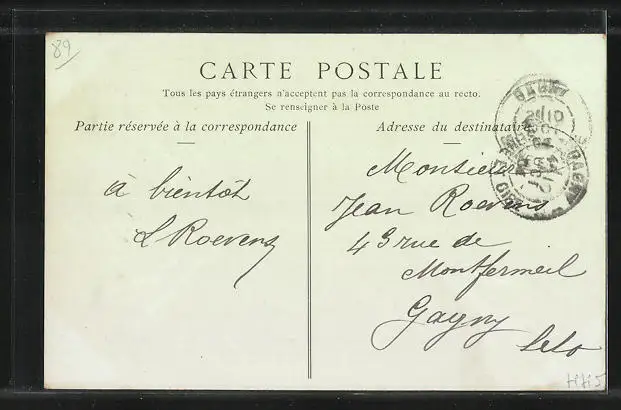 89
CARTE POSTALE
Tous les pays étrangers n'acceptent pas la correspondance au recto.
Se renseigner à la Poste
Partie réservée à la correspondance
à bientôt
L Roevens
Adresse du destinataire
Monsieur
Jean Roevens
43 rue de
Montfermeil
Gagny
S et O
GAGNY